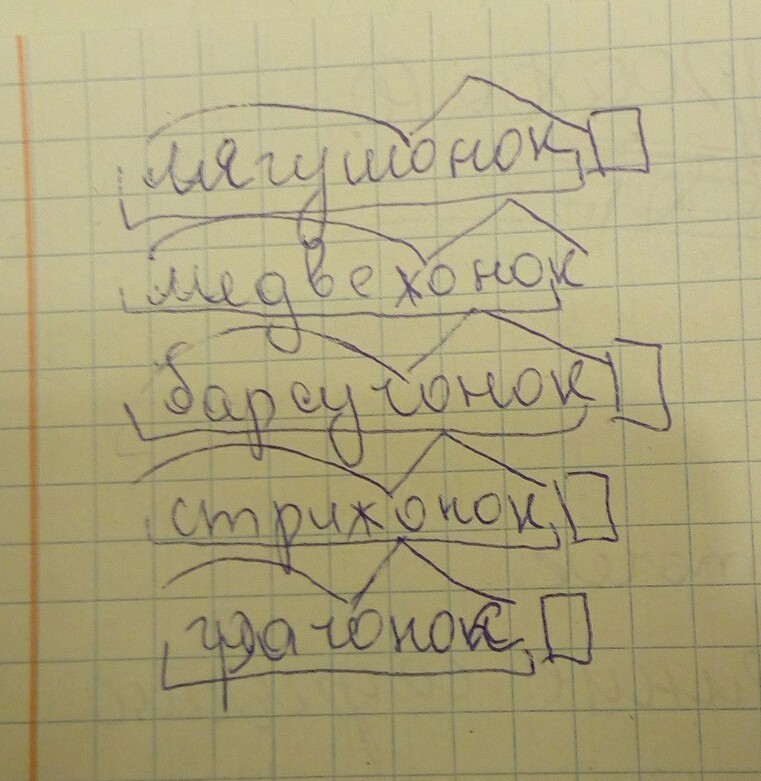 лягушонок
медвежонок
барсучонок
стрижонок
грачонок